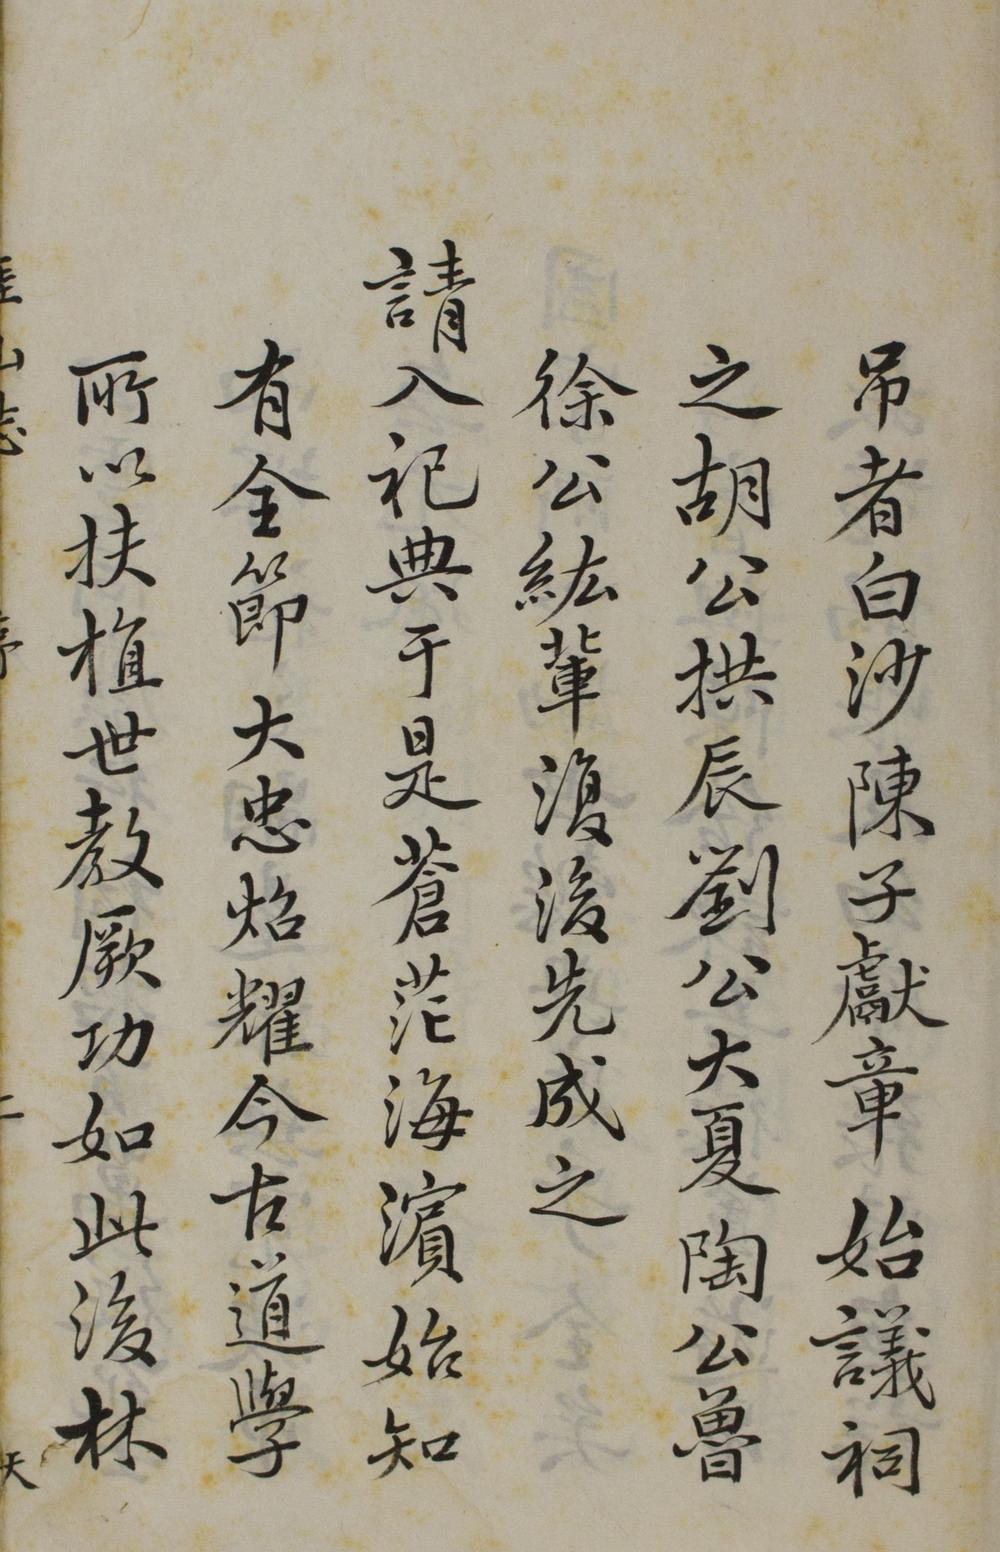 吊者白沙陳子獻章始議祠
之胡公拱辰劉公大夏陶公魯
徐公紘輩復後先成之
請入祀典于是蒼茫海濵始知
有全節大忠炤耀今古道學
所以扶植世教厥功如此後林
厓山志
序
二